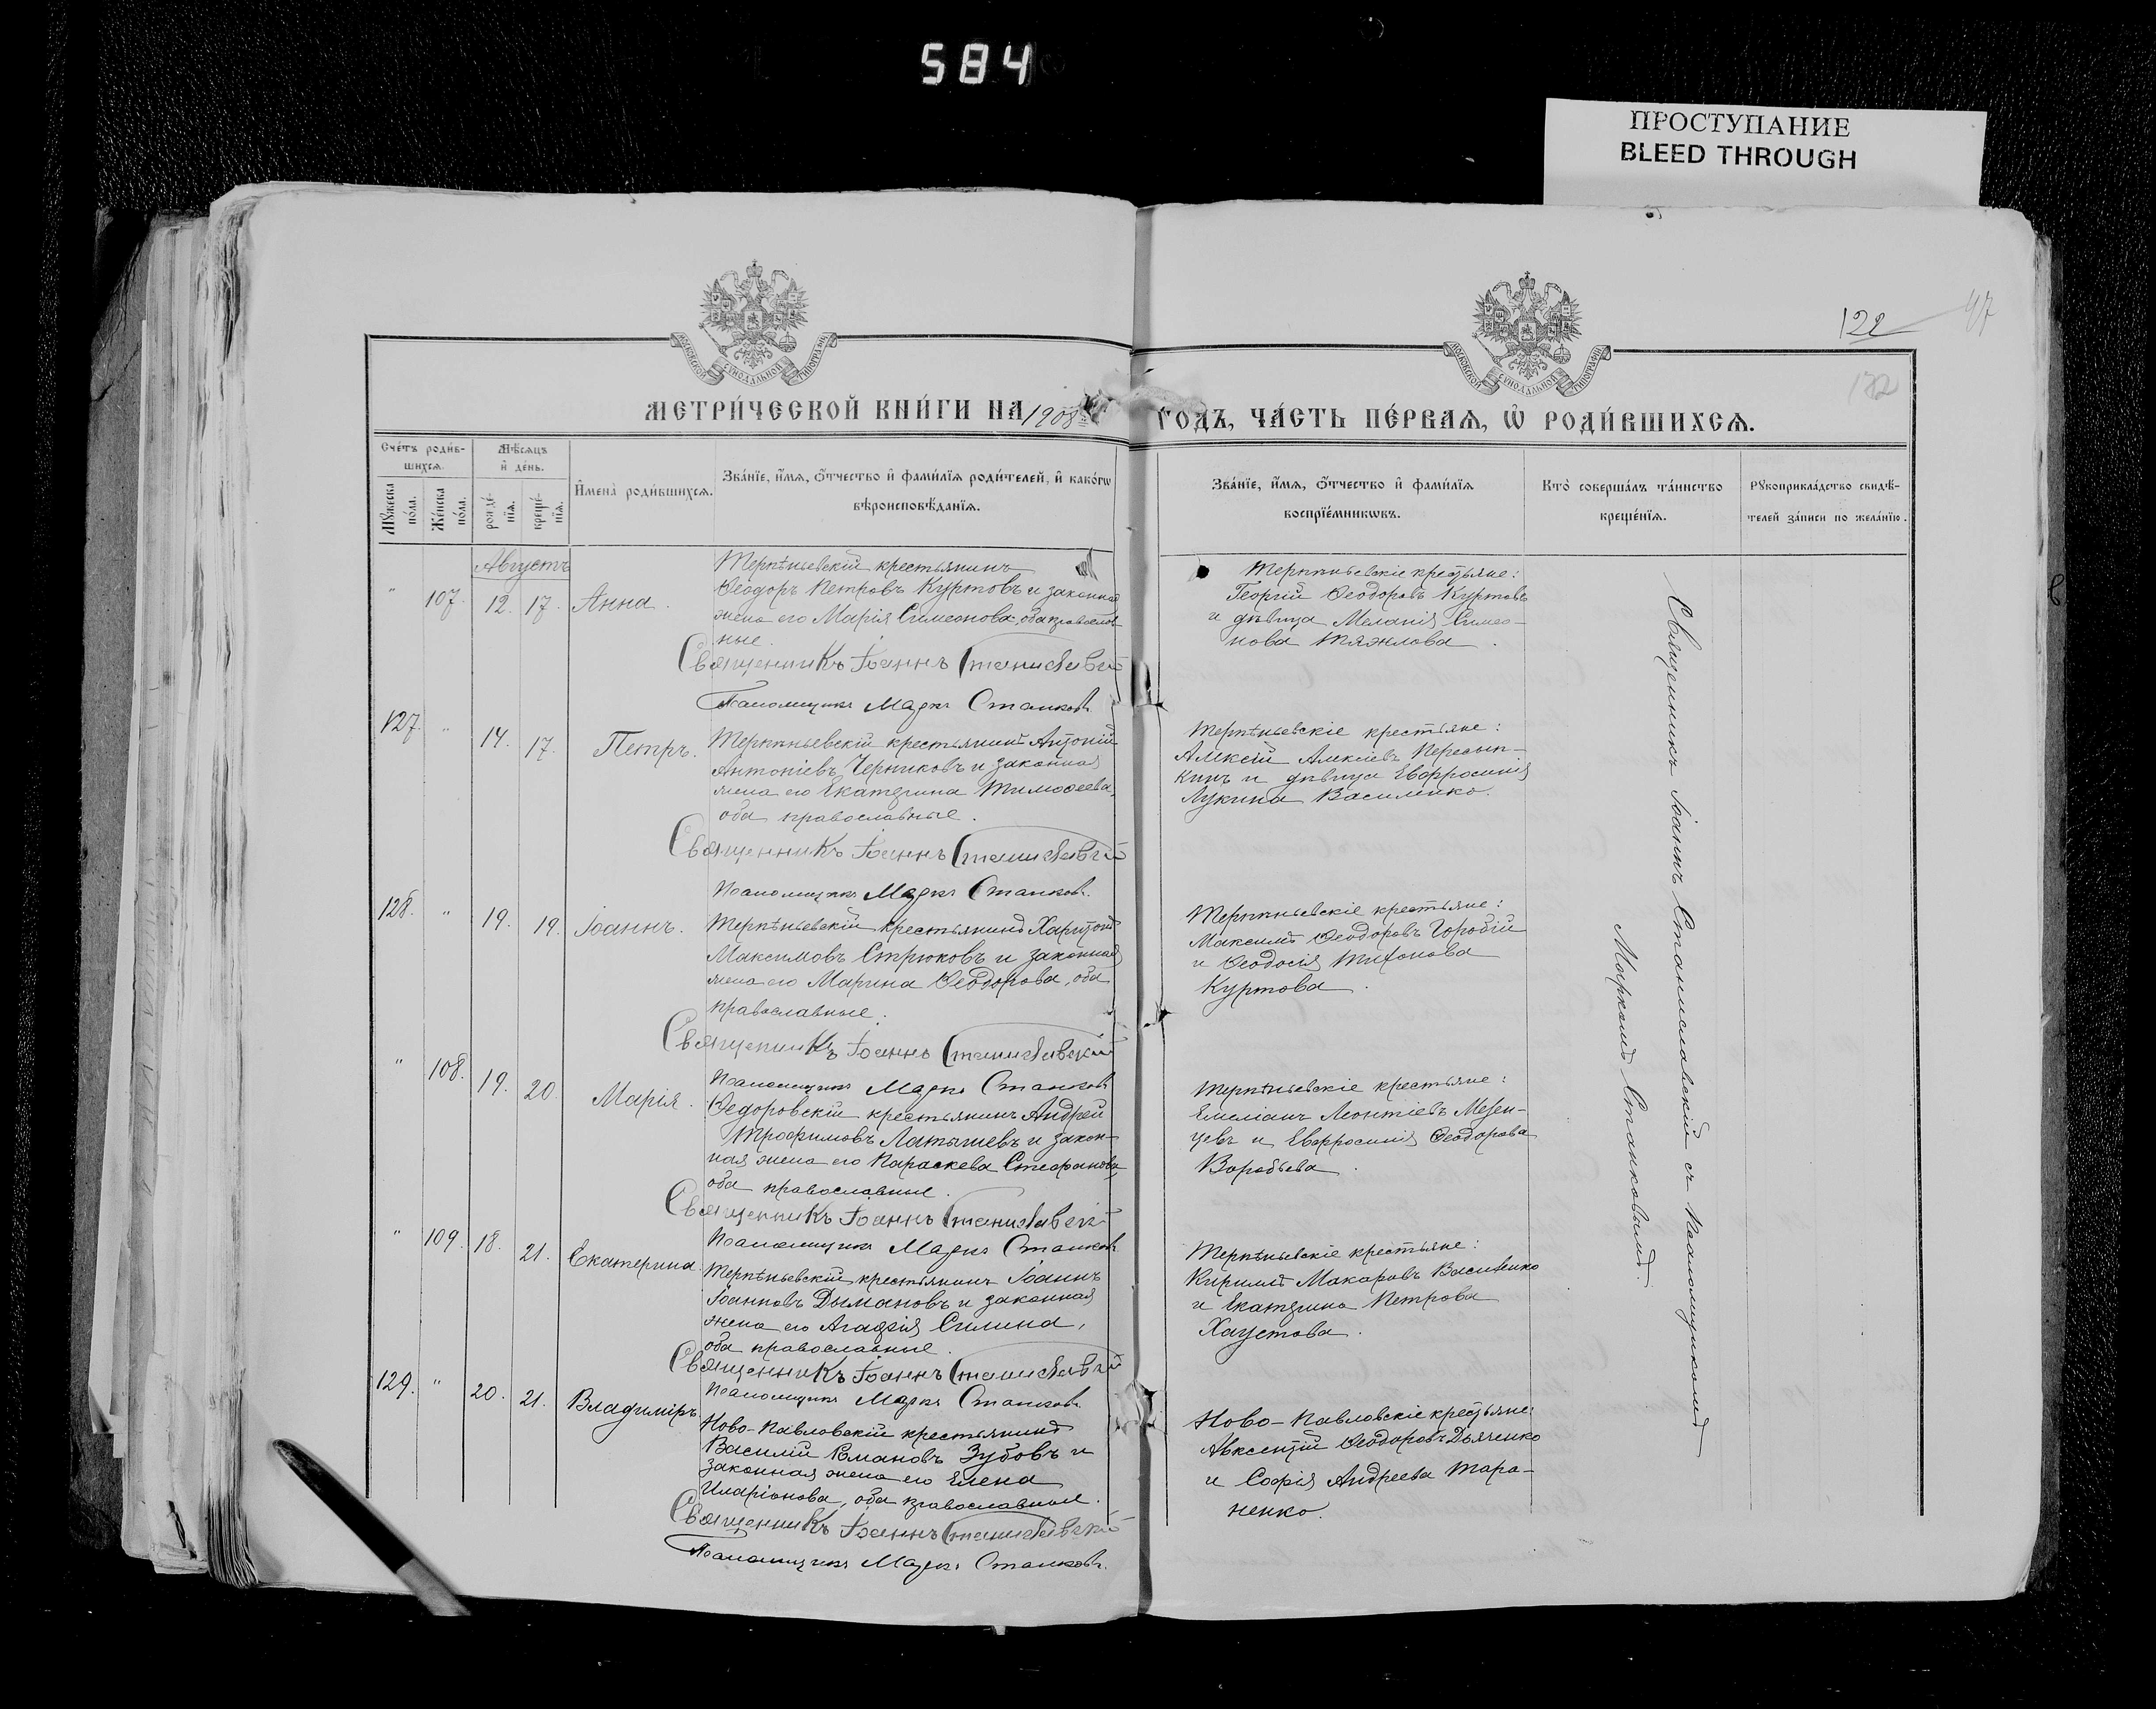 584
ПРОСТУПАНИЕ
BLEED THROUGH
122
47
122
МОСКОВСКОЙ СѴНОДАЛЬНОЙ ТИПОГРАФІИ
МОСКОВСКОЙ СѴНОДАЛЬНОЙ ТИПОГРАФІИ
МЕТРИ́ЧЕСКОЙ КНИ́ГИ НА 1908
ГОДЪ, ЧА́СТЬ ПЕ́РВАЯ, Ѡ҆ РОДИ́ВШИХСЯ.
Сче́тъ роди́в-
шихся.
Мꙋ́жеска по́ла.
Же́нска по́ла.
Мѣ́сяцъ и҆ де́нь.
рожде́-
нїя.
креще́-
нїя.
И҆мена̀ роди́вшихся.
Зва́нїе, и҆́мя, ѻ҆́тчество и҆ фами́лїя роди́телей, и҆ како́гѡ
вѣроисповѣ́данїя.
Зва́нїе, и҆́мя, ѻ҆́тчество и҆ фами́лїя
воспрїе́мникѡвъ.
Кто̀ соверша́лъ та́инство
креще́нїя.
Рꙋкоприкла́дство свидѣ́-
телей за́писи по жела́нїю.
Августъ
" 107. 12. 17. Анна.
Терпѣньевскій крестьянинъ
Ѳеодоръ Петровъ Куртовъ и законная
жена его Марія Симеонова, оба православ-
ные.
Священникъ Іоаннъ Станиславскій
Псаломщикъ Маркъ Станковъ
Терпѣньевскіе крестьяне:
Георгій Ѳеодоровъ Куртовъ
и дѣвица Меланія Симео-
нова Тяжлова.
127. " 14. 17. Петръ.
Терпѣньевскій крестьянинъ Антоній
Антоніевъ Черниковъ и законная
жена его Екатерина Тимоѳеева,
оба православные.
Священникъ Іоаннъ Станиславскій
Псаломщикъ Маркъ Станковъ.
Терпѣньевскіе крестьяне:
Алексій Алексіевъ Пересып-
кинъ и дѣвица Евфросинія
Лукина Василенко.
128. " 19. 19. Іоаннъ.
Терпѣньевскій крестьянинъ Харитонъ
Максимовъ Стрюковъ и законная
жена его Марина Ѳеодорова, оба
православные.
Священникъ Іоаннъ Станиславскій
Псаломщикъ Маркъ Станковъ
Терпѣньевскіе крестьяне:
Максимъ Ѳеодоровъ Горобій
и Ѳеодосія Тихонова
Куртова.
" 108. 19. 20. Марія.
Ѳедоровскій крестьянинъ Андрей
Трофимовъ Латышевъ и закон-
ная жена его Параскева Стефанова,
оба православные.
Священникъ Іоаннъ Станиславскій
Псаломщикъ Маркъ Станковъ
Терпѣньевскіе крестьяне:
Емеліанъ Леонтіевъ Мезен-
цевъ и Евфросинія Ѳеодорова
Воробьева.
" 109. 18. 21. Екатерина.
Терпѣньевскій крестьянинъ Іоаннъ
Іоанновъ Дымановъ и законная
жена его Агафія Силина,
оба православные.
Священникъ Іоаннъ Станиславскій
Псаломщикъ Маркъ Станковъ
Терпѣньевскіе крестьяне:
Кириллъ Макаровъ Василенко
и Екатерина Петрова
Хаустова.
129. " 20. 21. Владиміръ
Ново-Павловскій крестьянинъ
Василій Романовъ Зубовъ и
законная жена его Елена
Иларіонова, оба православные.
Священникъ Іоаннъ Станиславскій
Псаломщикъ Маркъ Станковъ.
Ново-Павловскіе крестьяне:
Авксентій Ѳеодоровъ Дьяченко
и Софія Андреева Тара-
ненко.
Священникъ Іоаннъ Станиславскій съ псаломщикомъ
Маркомъ Станковымъ.